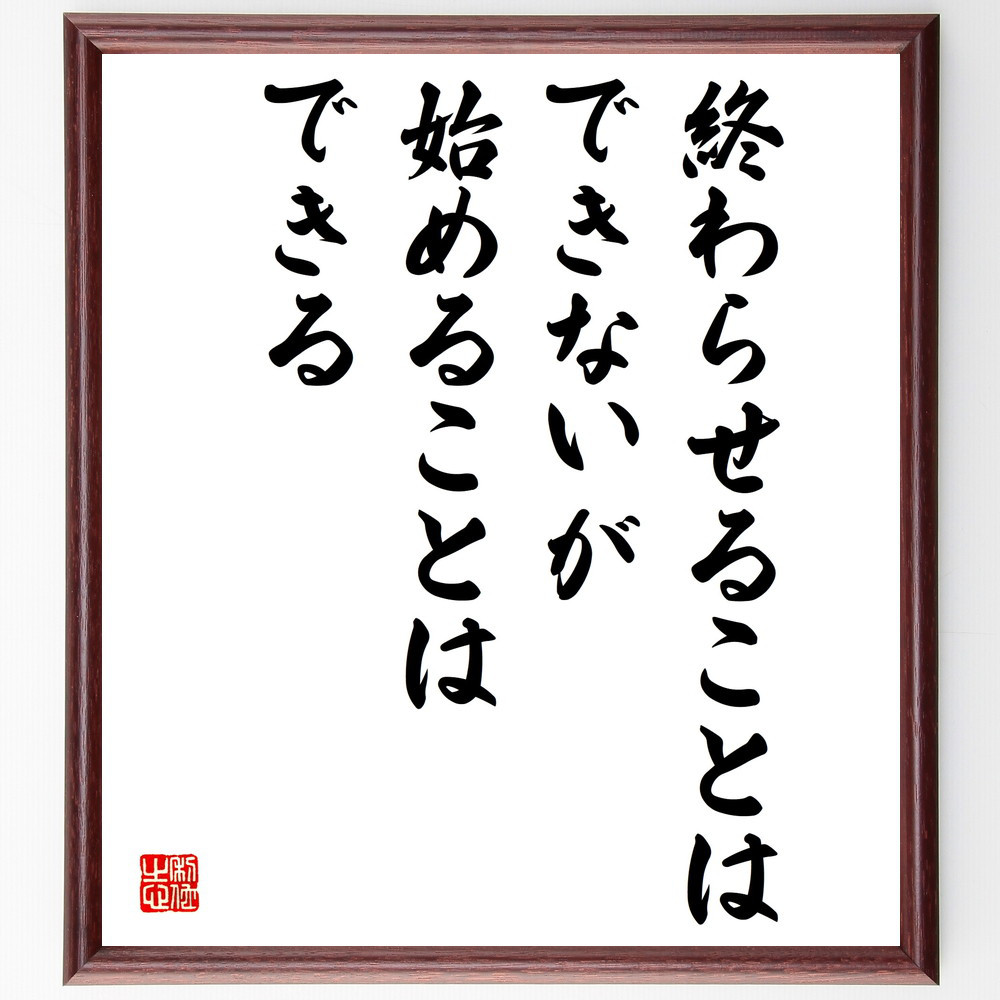 終わらせることは
できないが
始めることは
できる